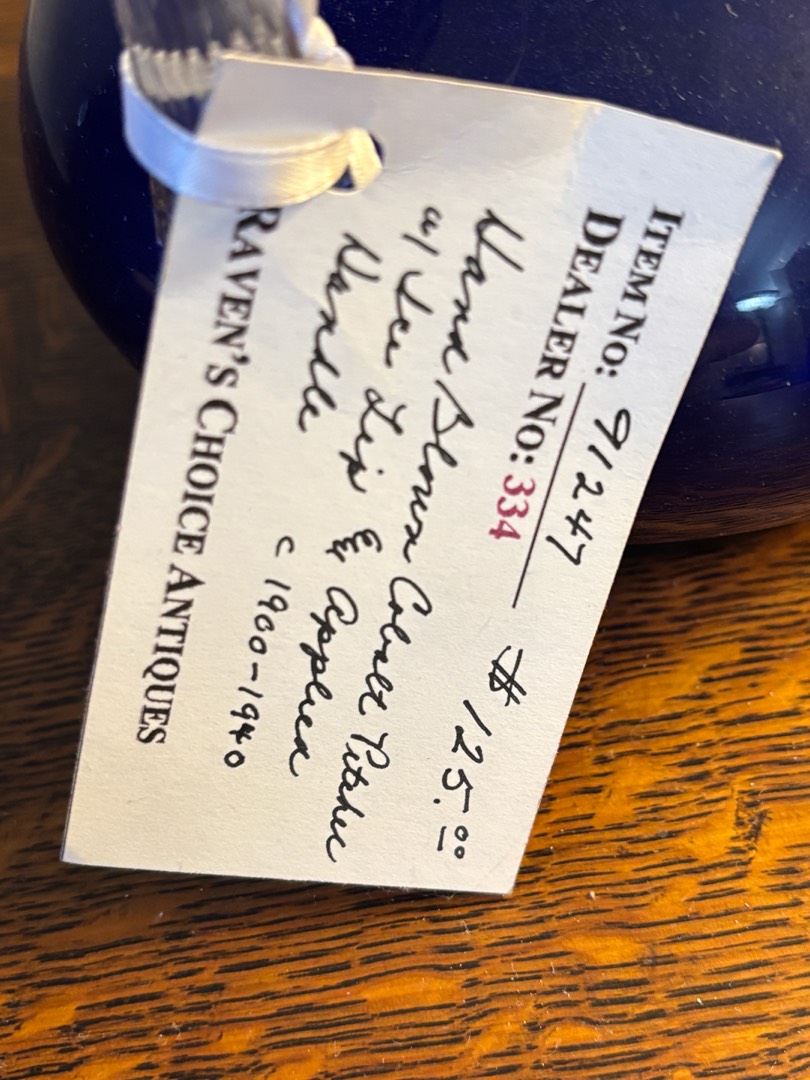 ITEM NO: 91247
DEALER NO: 334 $125.00
Hand Blown Cobalt Pitcher
w/ Ice Lip & Applied
Handle c 1900-1940
RAVEN'S CHOICE ANTIQUES